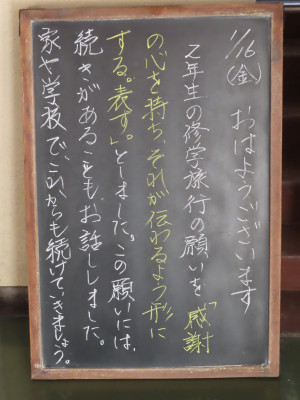 1/16(金) おはようございます
2年生の修学旅行の願いを「感謝
の心を持ち、それが伝わるよう形に
する。表す。」としました。この願いには、
続きがあることも、お話ししました。
家や学校で、これからも続けていきましょう。